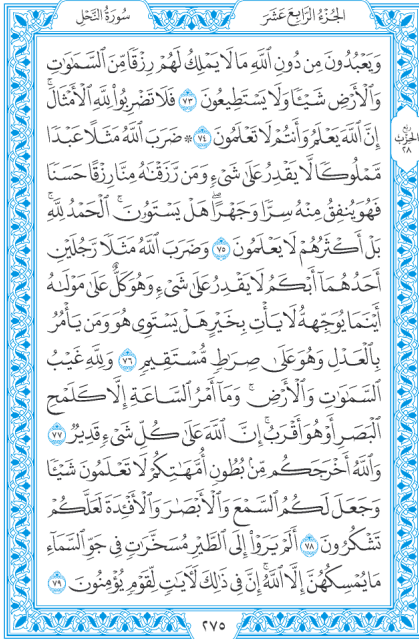 سُورَةُ النَّحْلِ
الجُزْءُ الرَّابِعَ عَشَرَ
وَيَعْبُدُونَ مِن دُونِ ٱللَّهِ مَا لَا يَمْلِكُ لَهُمْ رِزْقًا مِّنَ ٱلسَّمَٰوَٰتِ
وَٱلْأَرْضِ شَيْـًٔا وَلَا يَسْتَطِيعُونَ ٧٣ فَلَا تَضْرِبُوا۟ لِلَّهِ ٱلْأَمْثَالَ ۚ
إِنَّ ٱللَّهَ يَعْلَمُ وَأَنتُمْ لَا تَعْلَمُونَ ٧٤ ۞ ضَرَبَ ٱللَّهُ مَثَلًا عَبْدًا
مَّمْلُوكًا لَّا يَقْدِرُ عَلَىٰ شَىْءٍ وَمَن رَّزَقْنَٰهُ مِنَّا رِزْقًا حَسَنًا
فَهُوَ يُنفِقُ مِنْهُ سِرًّا وَجَهْرًا ۖ هَلْ يَسْتَوُۥنَ ۚ ٱلْحَمْدُ لِلَّهِ ۚ
بَلْ أَكْثَرُهُمْ لَا يَعْلَمُونَ ٧٥ وَضَرَبَ ٱللَّهُ مَثَلًا رَّجُلَيْنِ
أَحَدُهُمَآ أَبْكَمُ لَا يَقْدِرُ عَلَىٰ شَىْءٍ وَهُوَ كَلٌّ عَلَىٰ مَوْلَىٰهُ
أَيْنَمَا يُوَجِّههُّ لَا يَأْتِ بِخَيْرٍ هَلْ يَسْتَوِى هُوَ وَمَن يَأْمُرُ
بِٱلْعَدْلِ وَهُوَ عَلَىٰ صِرَٰطٍ مُّسْتَقِيمٍ ٧٦ وَلِلَّهِ غَيْبُ
ٱلسَّمَٰوَٰتِ وَٱلْأَرْضِ ۚ وَمَآ أَمْرُ ٱلسَّاعَةِ إِلَّا كَلَمْحِ
ٱلْبَصَرِ أَوْ هُوَ أَقْرَبُ ۚ إِنَّ ٱللَّهَ عَلَىٰ كُلِّ شَىْءٍ قَدِيرٌ ٧٧
وَٱللَّهُ أَخْرَجَكُم مِّنۢ بُطُونِ أُمَّهَٰتِكُمْ لَا تَعْلَمُونَ شَيْـًٔا
وَجَعَلَ لَكُمُ ٱلسَّمْعَ وَٱلْأَبْصَٰرَ وَٱلْأَفْـِٔدَةَ لَعَلَّكُمْ
تَشْكُرُونَ ٧٨ أَلَمْ يَرَوْا۟ إِلَى ٱلطَّيْرِ مُسَخَّرَٰتٍ فِى جَوِّ ٱلسَّمَآءِ
مَا يُمْسِكُهُنَّ إِلَّا ٱللَّهُ ۗ إِنَّ فِى ذَٰلِكَ لَءَايَٰتٍ لِّقَوْمٍ يُؤْمِنُونَ ٧٩
ربع
الحزب
٢٨
٢٧٥